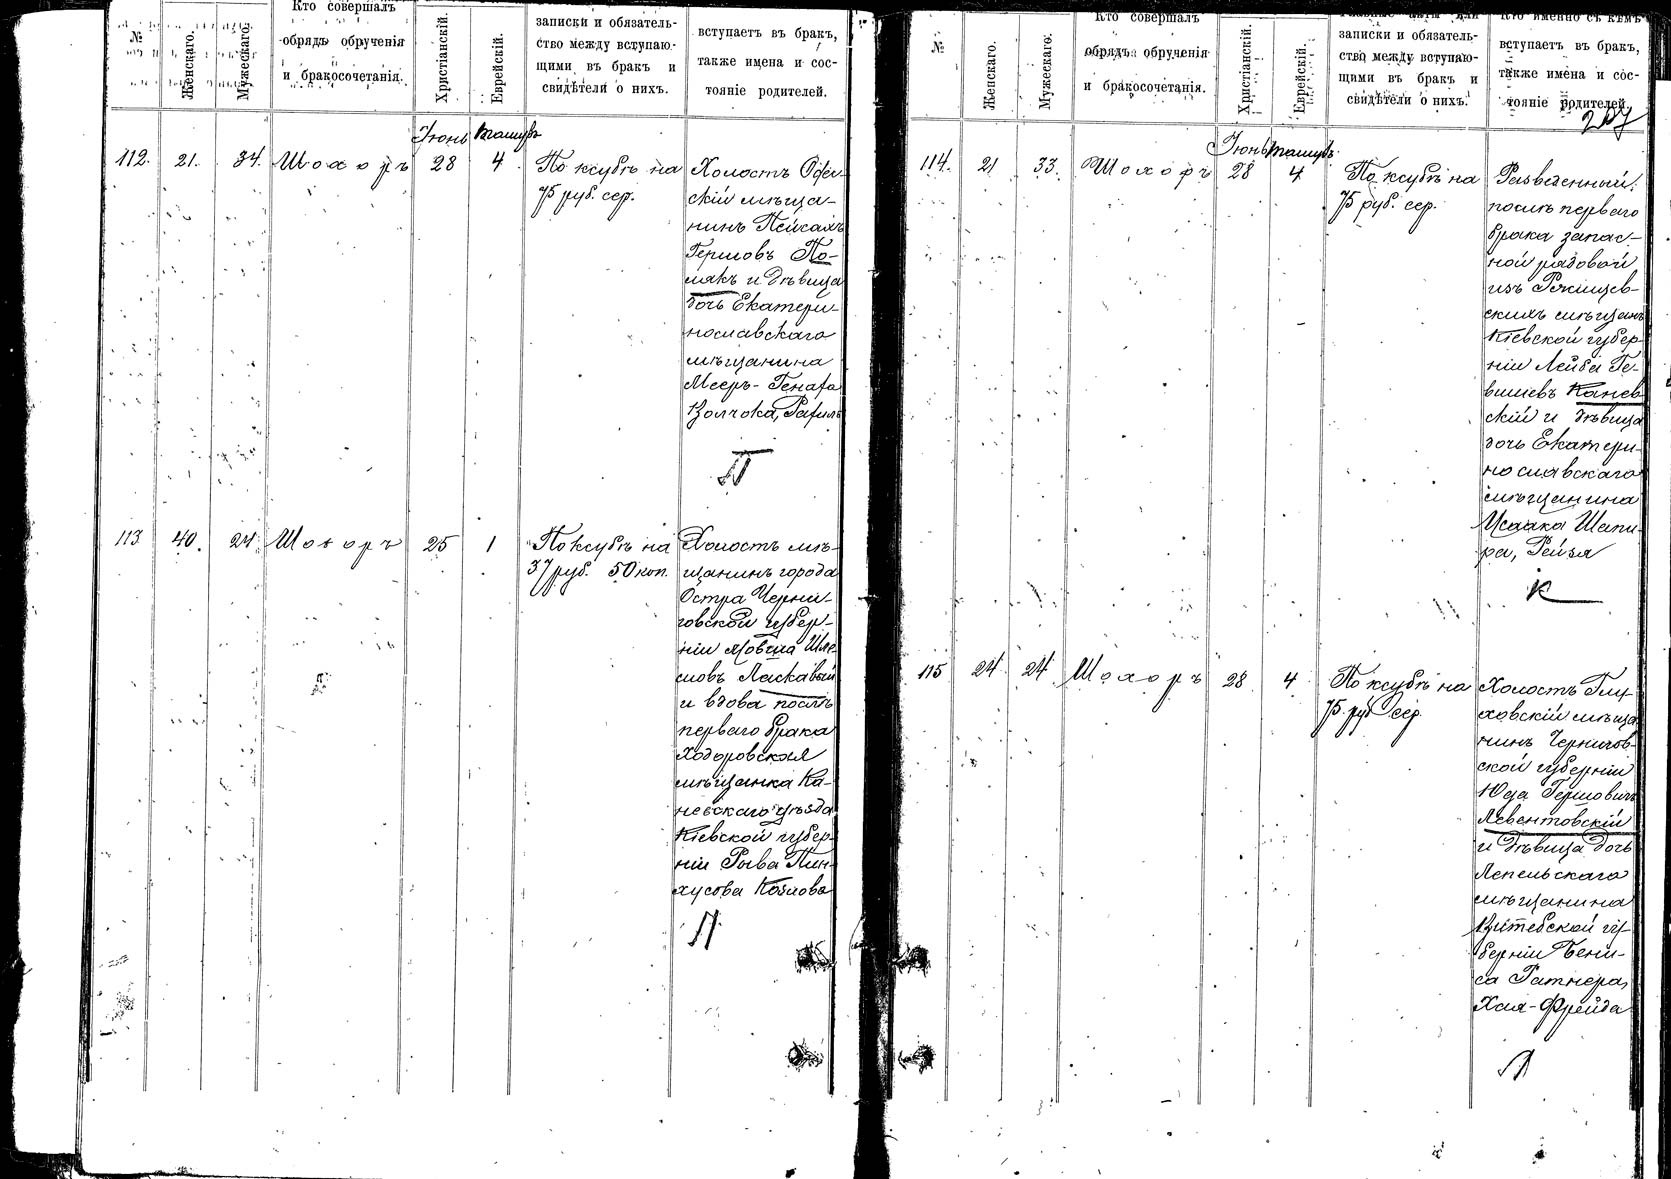 №
Женскаго.
Мужескаго.
Кто совершалъ
обрядъ обрученія
и бракосочетанія.
Христіанскій.
Еврейскій.
записки и обязатель-
ство между вступаю-
щими въ бракъ и
свидѣтели о нихъ.
вступаетъ въ бракъ,
также имена и сос-
тояніе родителей.
Іюнь
112. 21. 34. Шохоръ 28 4
По ксубѣ на
75 руб. сер.
Холостъ Одес-
скій мѣща-
нинъ Пейсахъ
Гершовъ По-
лякъ и дѣвица
дочь Екатери-
нославскаго
мѣщанина
Мееръ-
Волчока,
П
113 40. 24. Шохоръ 25 1
По ксубѣ на
37 руб. 50 коп.
Холостъ мѣ-
щанинъ города
Остра Черни-
говской губер-
ніи Мовша Шле-
мовъ Ласкавый
и вдова послѣ
перваго брака
Ходоровская
мѣщанка Ка-
невскаго уѣзда
Кіевской губер-
ніи Рыва Пин-
хусова Козлова
Л
№
Женскаго.
Мужескаго.
Кто совершалъ
обрядъ обрученія
и бракосочетанія.
Христіанскій.
Еврейскій.
записки и обязатель-
ство между вступаю-
щими въ бракъ и
свидѣтели о нихъ.
Кто именно съ кѣмъ
вступаетъ въ бракъ,
также имена и сос-
тояніе родителей.
Іюнь
114. 21 33. Шохоръ 28 4
По ксубѣ на
75 руб. сер.
Разведенный
послѣ перваго
брака запас-
ной рядовой
изъ Ржищев-
скихъ мѣщанъ
Кіевской губер-
ніи Лейба Ге-
вишевъ Канев-
скій и дѣвица
дочь Екатери-
нославскаго
мѣщанина
Исаака Шапи-
ра, Рейзя
К
115 24 24 Шохоръ 28 4
По ксубѣ на
75 руб сер.
Холостъ Глу-
ховскій мѣща-
нинъ Чернигов-
ской губерніи
Юда Гершовичъ
Левентовскій
и дѣвица дочь
Лепельскаго
мѣщанина
Витебской гу-
берніи Бени-
са Ратнера,
Хая-Фрейда
Л